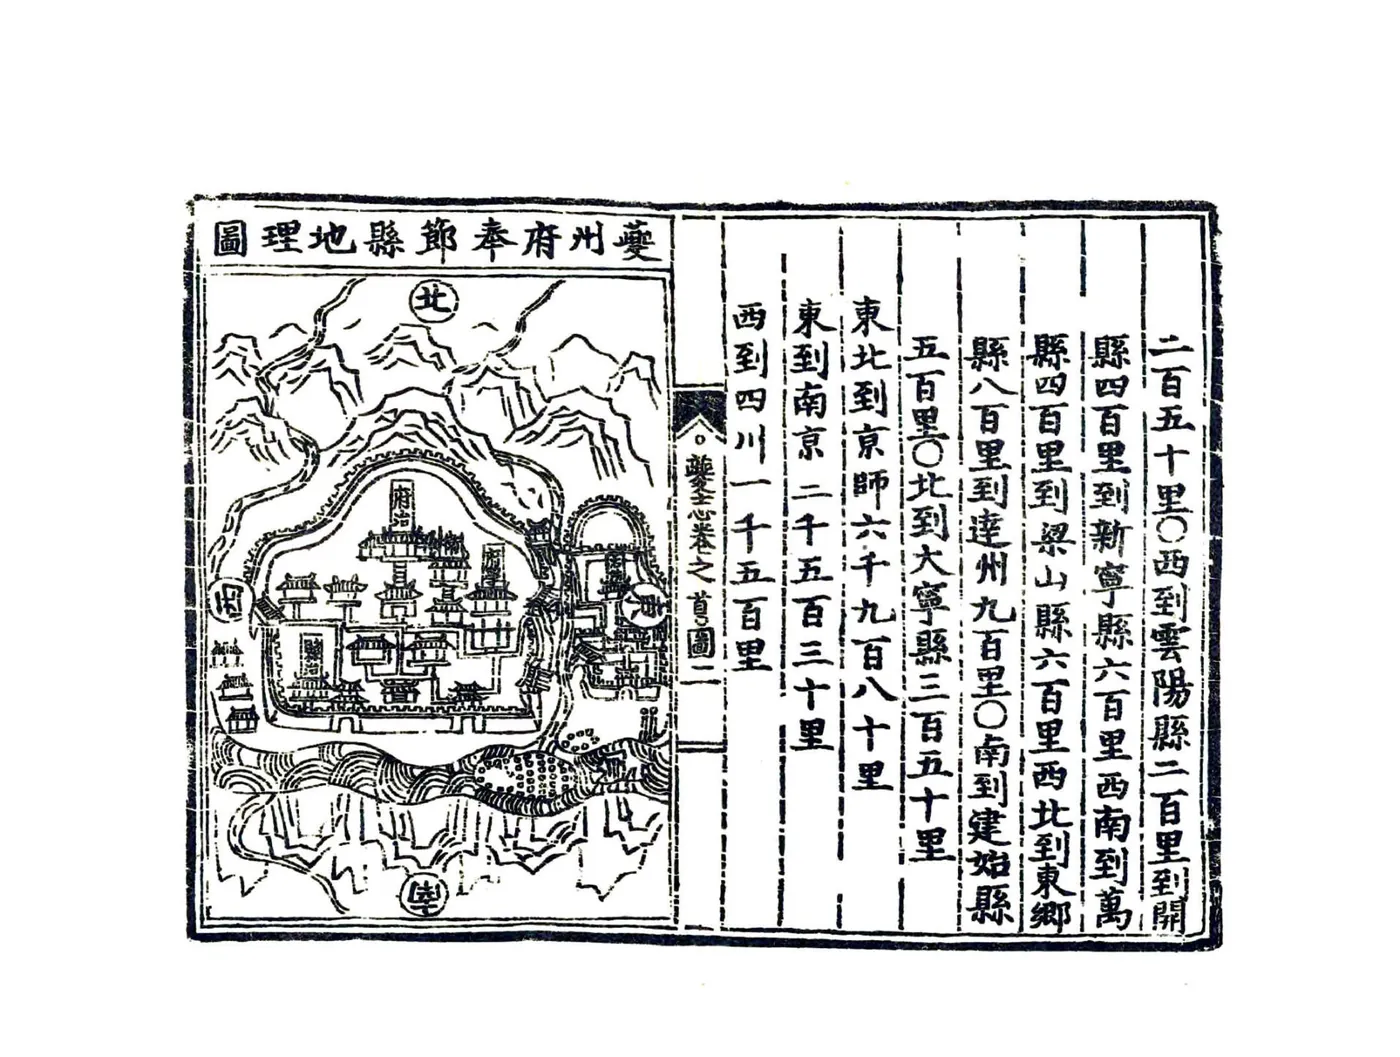 二百五十里○西到雲陽縣二百里到開
縣四百里到新寧縣六百里西南到萬
縣四百里到梁山縣六百里西北到東鄉
縣八百里到達州九百里○南到建始縣
五百里○北到大寧縣三百五十里
東北到京師六千九百八十里
東到南京二千五百三十里
西到四川一千五百里
夔志卷之首 圖 二
夔州府奉節縣地理圖
北
府治
府學
縣治
東
西
南